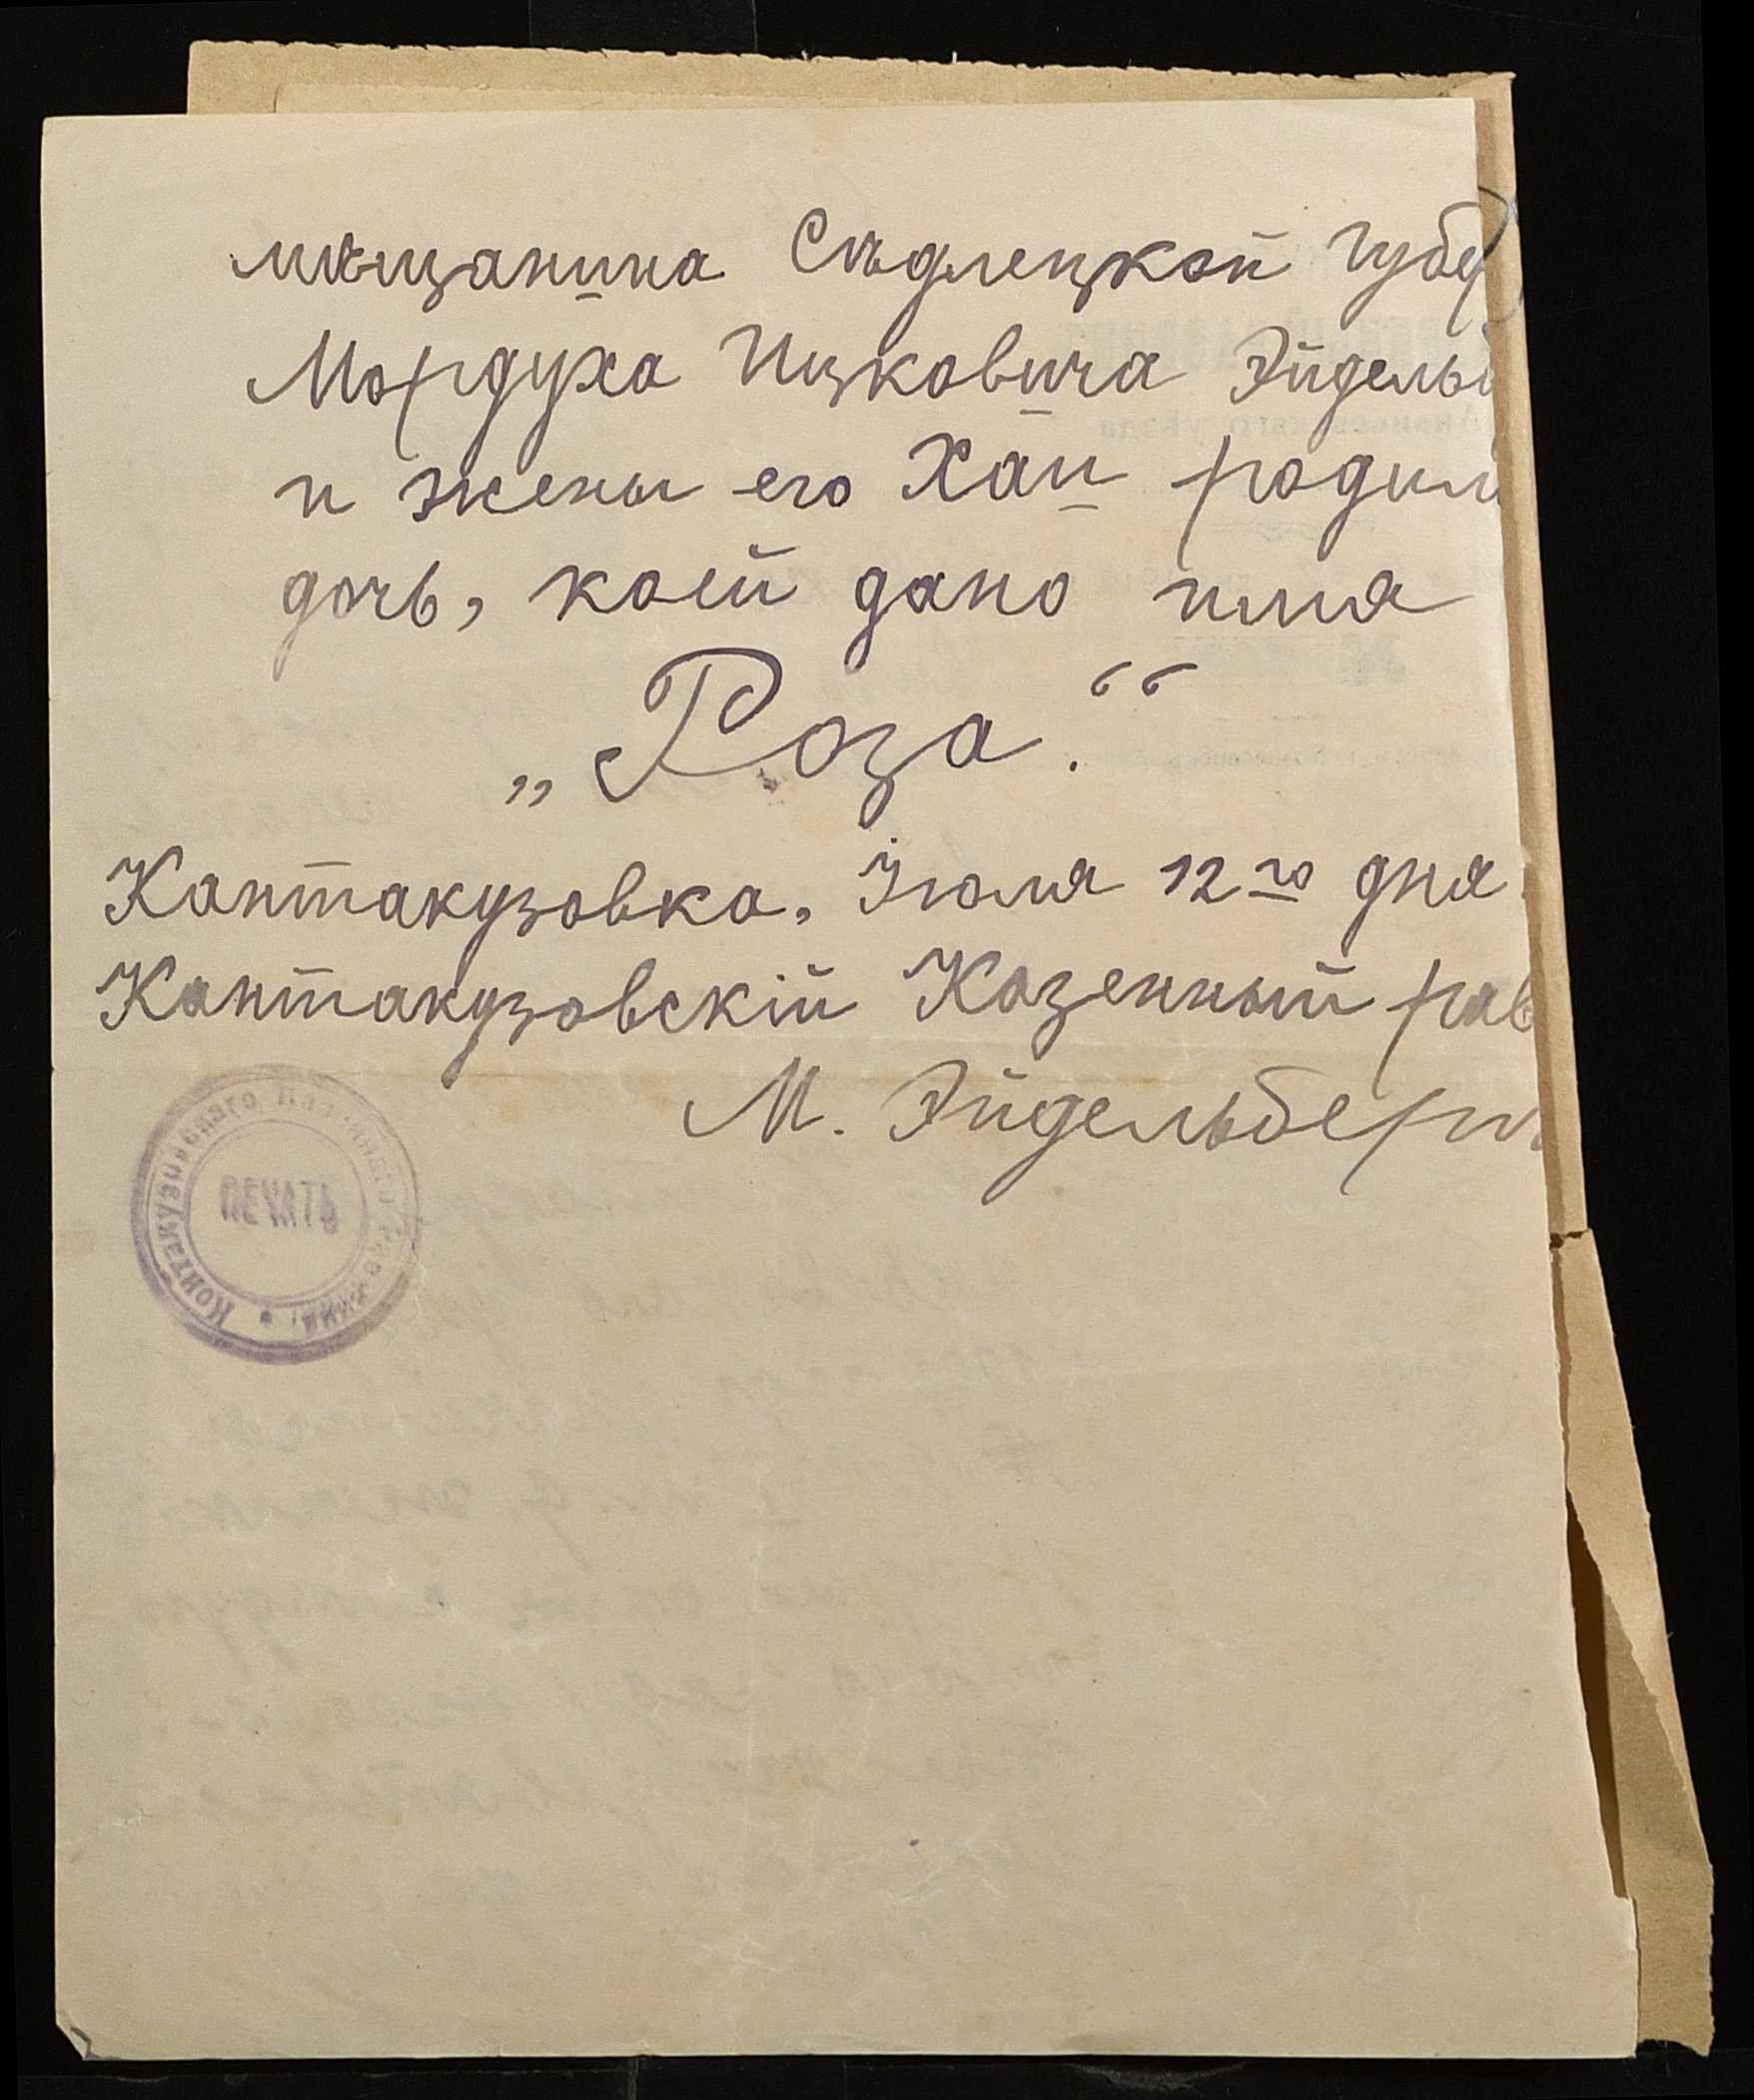 мѣщанина Сѣдлецкой Губер
Мордуха Ицковича Эйдельб
и жены его Хаи родил
дочь, коей дано имя
„Роза.“
Кантакузовка, Іюля 12го дня
Кантакузовскій Казенный рав
М. Эйдельберг
ПЕЧАТЬ